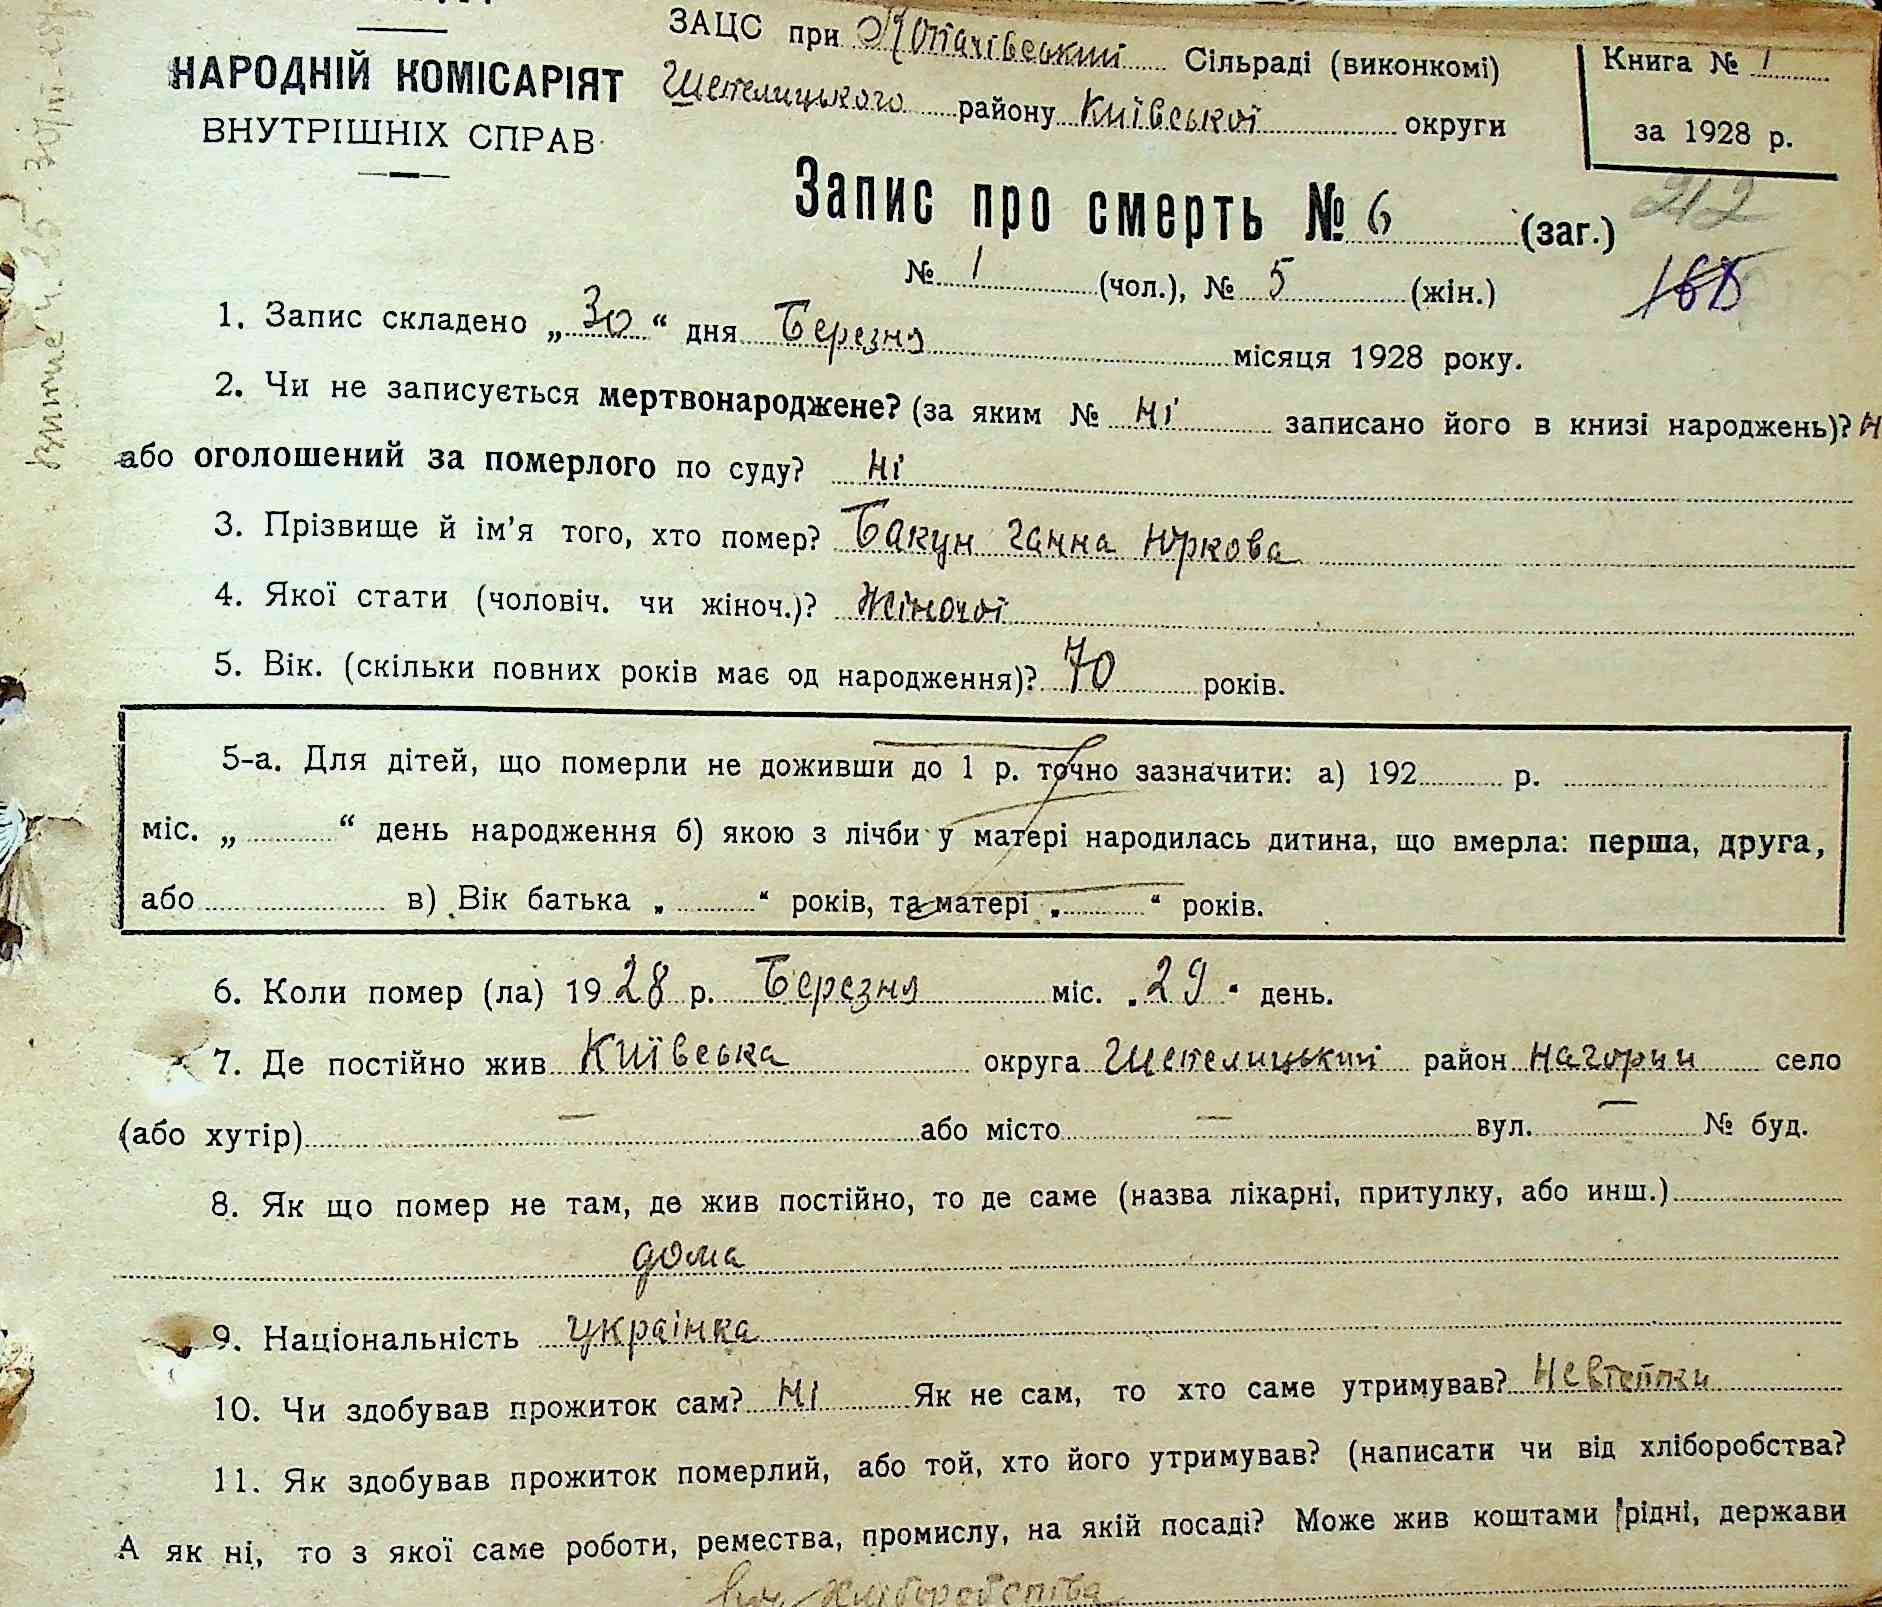 ЗАЦС при Копачівський Сільраді (виконкомі)
Шепелицького району Київської округи
Книга № 1
за 1928 р.
НАРОДНІЙ КОМІСАРІЯТ
ВНУТРІШНІХ СПРАВ
Запис про смерть № 6 (заг.)
212
№ 1 (чол.), № 5 (жін.)
1. Запис складено „30“ дня Березня місяця 1928 року.
2. Чи не записується мертвонароджене? (за яким № ні записано його в книзі народжень)? Н
або оголошений за померлого по суду? ні
3. Прізвище й ім'я того, хто помер? Бакун Ганна Юркова
4. Якої стати (чоловіч. чи жіноч.)? Жіночої
5. Вік. (скільки повних років має од народження)? 70 років.
5-а. Для дітей, що померли не доживши до 1 р. точно зазначити: а) 192 р.
міс. „ “ день народження б) якою з лічби у матері народилась дитина, що вмерла: перша, друга,
або в) Вік батька „ “ років, та матері „ “ років.
6. Коли помер (ла) 1928 р. Березня міс. „29“ день.
7. Де постійно жив Київська округа Шепелицький район Нагорци село
(або хутір) — або місто — вул. — № буд.
8. Як що помер не там, де жив постійно, то де саме (назва лікарні, притулку, або инш.)
дома
9. Національність українка
10. Чи здобував прожиток сам? Ні Як не сам, то хто саме утримував?
11. Як здобував прожиток померлий, або той, хто його утримував? (написати чи від хліборобства?
А як ні, то з якої саме роботи, ремества, промислу, на якій посаді? Може жив коштами рідні, держави
від хліборобства